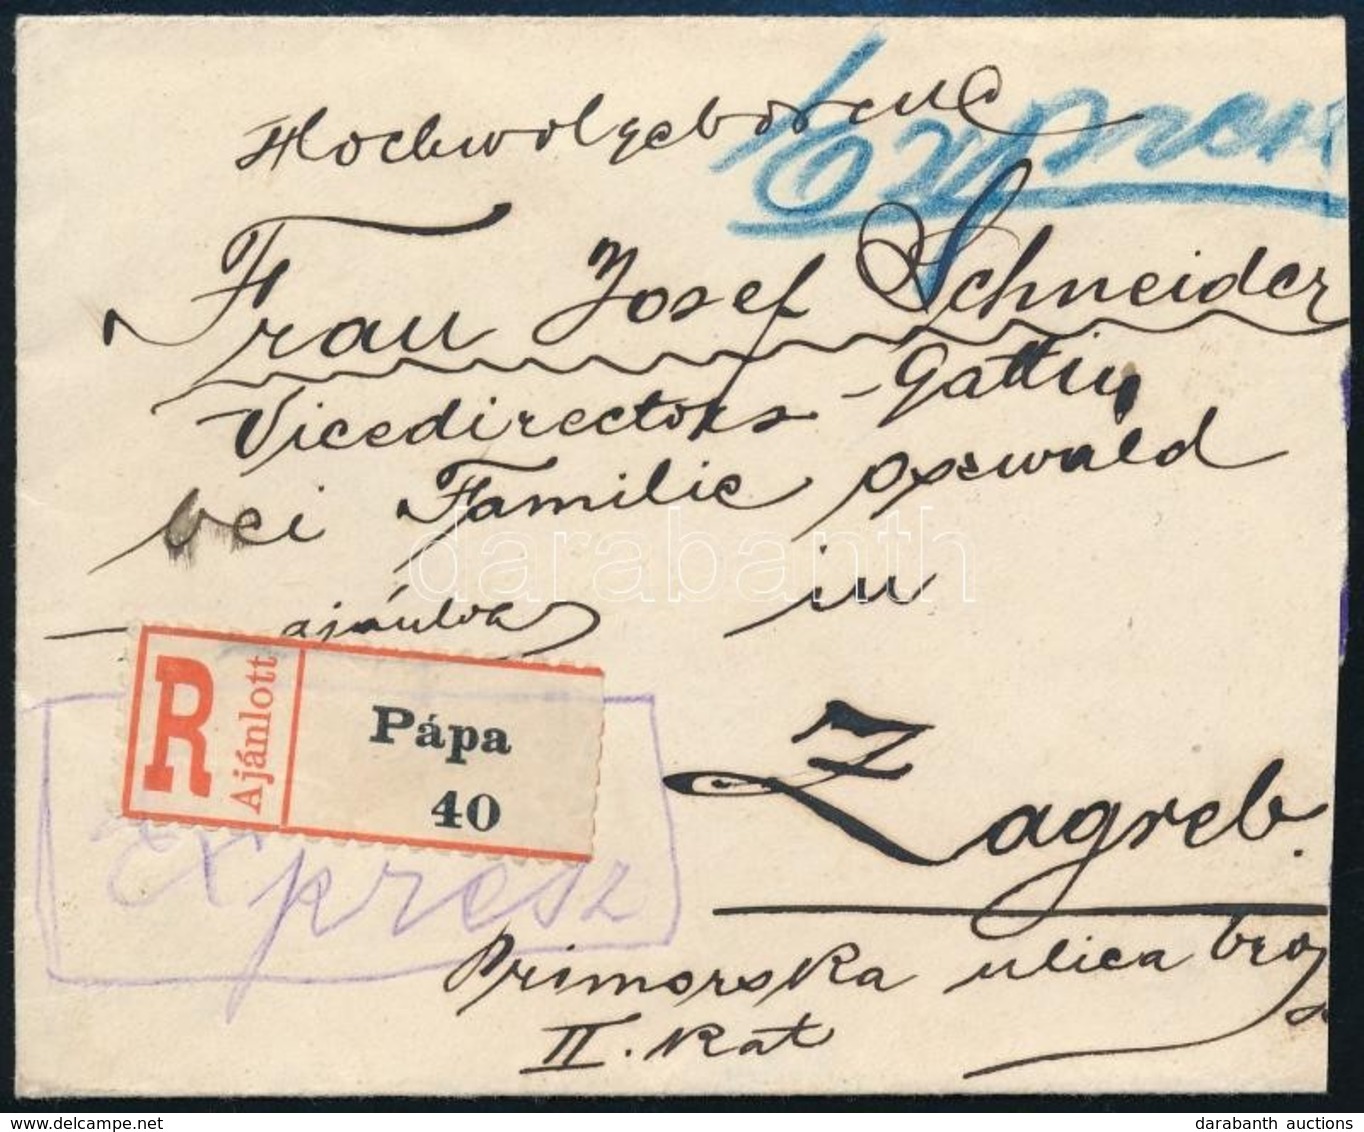 Hochwolgeborene
Express
Frau Josef Schneider
Vicedirectors-Gattin
bei Familie Oszwald
ajánlva
in
R Ajánlott
Pápa
40
Zagreb.
Expresz
Primorska ulica broj
II. Kat
darabanth
www.delcampe.net
darabanth auctions